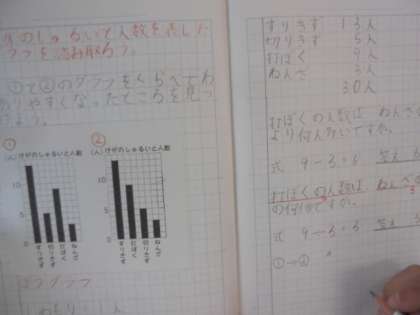 けがのしゅるいと人数を表した
グラフを読み取ろう。
①と②のグラフをくらべてわ
かりやすくなったところを見つ
けよう。
①
②
(人) けがのしゅるいと人数
(人) けがのしゅるいと人数
10
5
0
10
5
0
すりきず
切りきず
打ぼく
ねんざ
すりきず
打ぼく
切りきず
ねんざ
ぼうグラフ
1めもり 1人
すりきず 13人
切りきず 5人
打ぼく 9人
ねんざ 3人
30人
打ぼくの人数は ねんざ
より何人多いですか。
式 9-3=6 答え
打ぼくの人数は ねんざの
の何倍ですか。
式 9÷3=3 答え
①→②